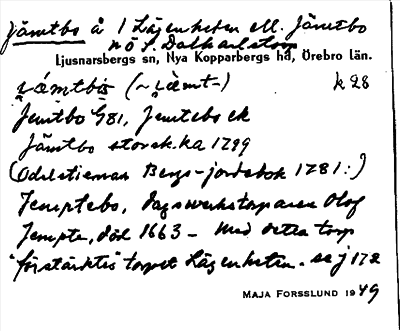 Jämtbo å 1 Lägenheten ell. Jämtbo
nö S. Dalkarlstorp
Ljusnarsbergs sn, Nya Kopparbergs hd, Örebro län.
(~ ) k 28
Jemtbo G81, Jemtebo ek
Jämtbo storsk.ka 1799
(Odelstiernan Bergs-jordebok 1781:)
Jemptebo, dagsverkstorparen Olof
Jempte, död 1663 – Med detta torp
"förstärktes" torpet Lägenheten. se j 172
MAJA FORSSLUND 1949